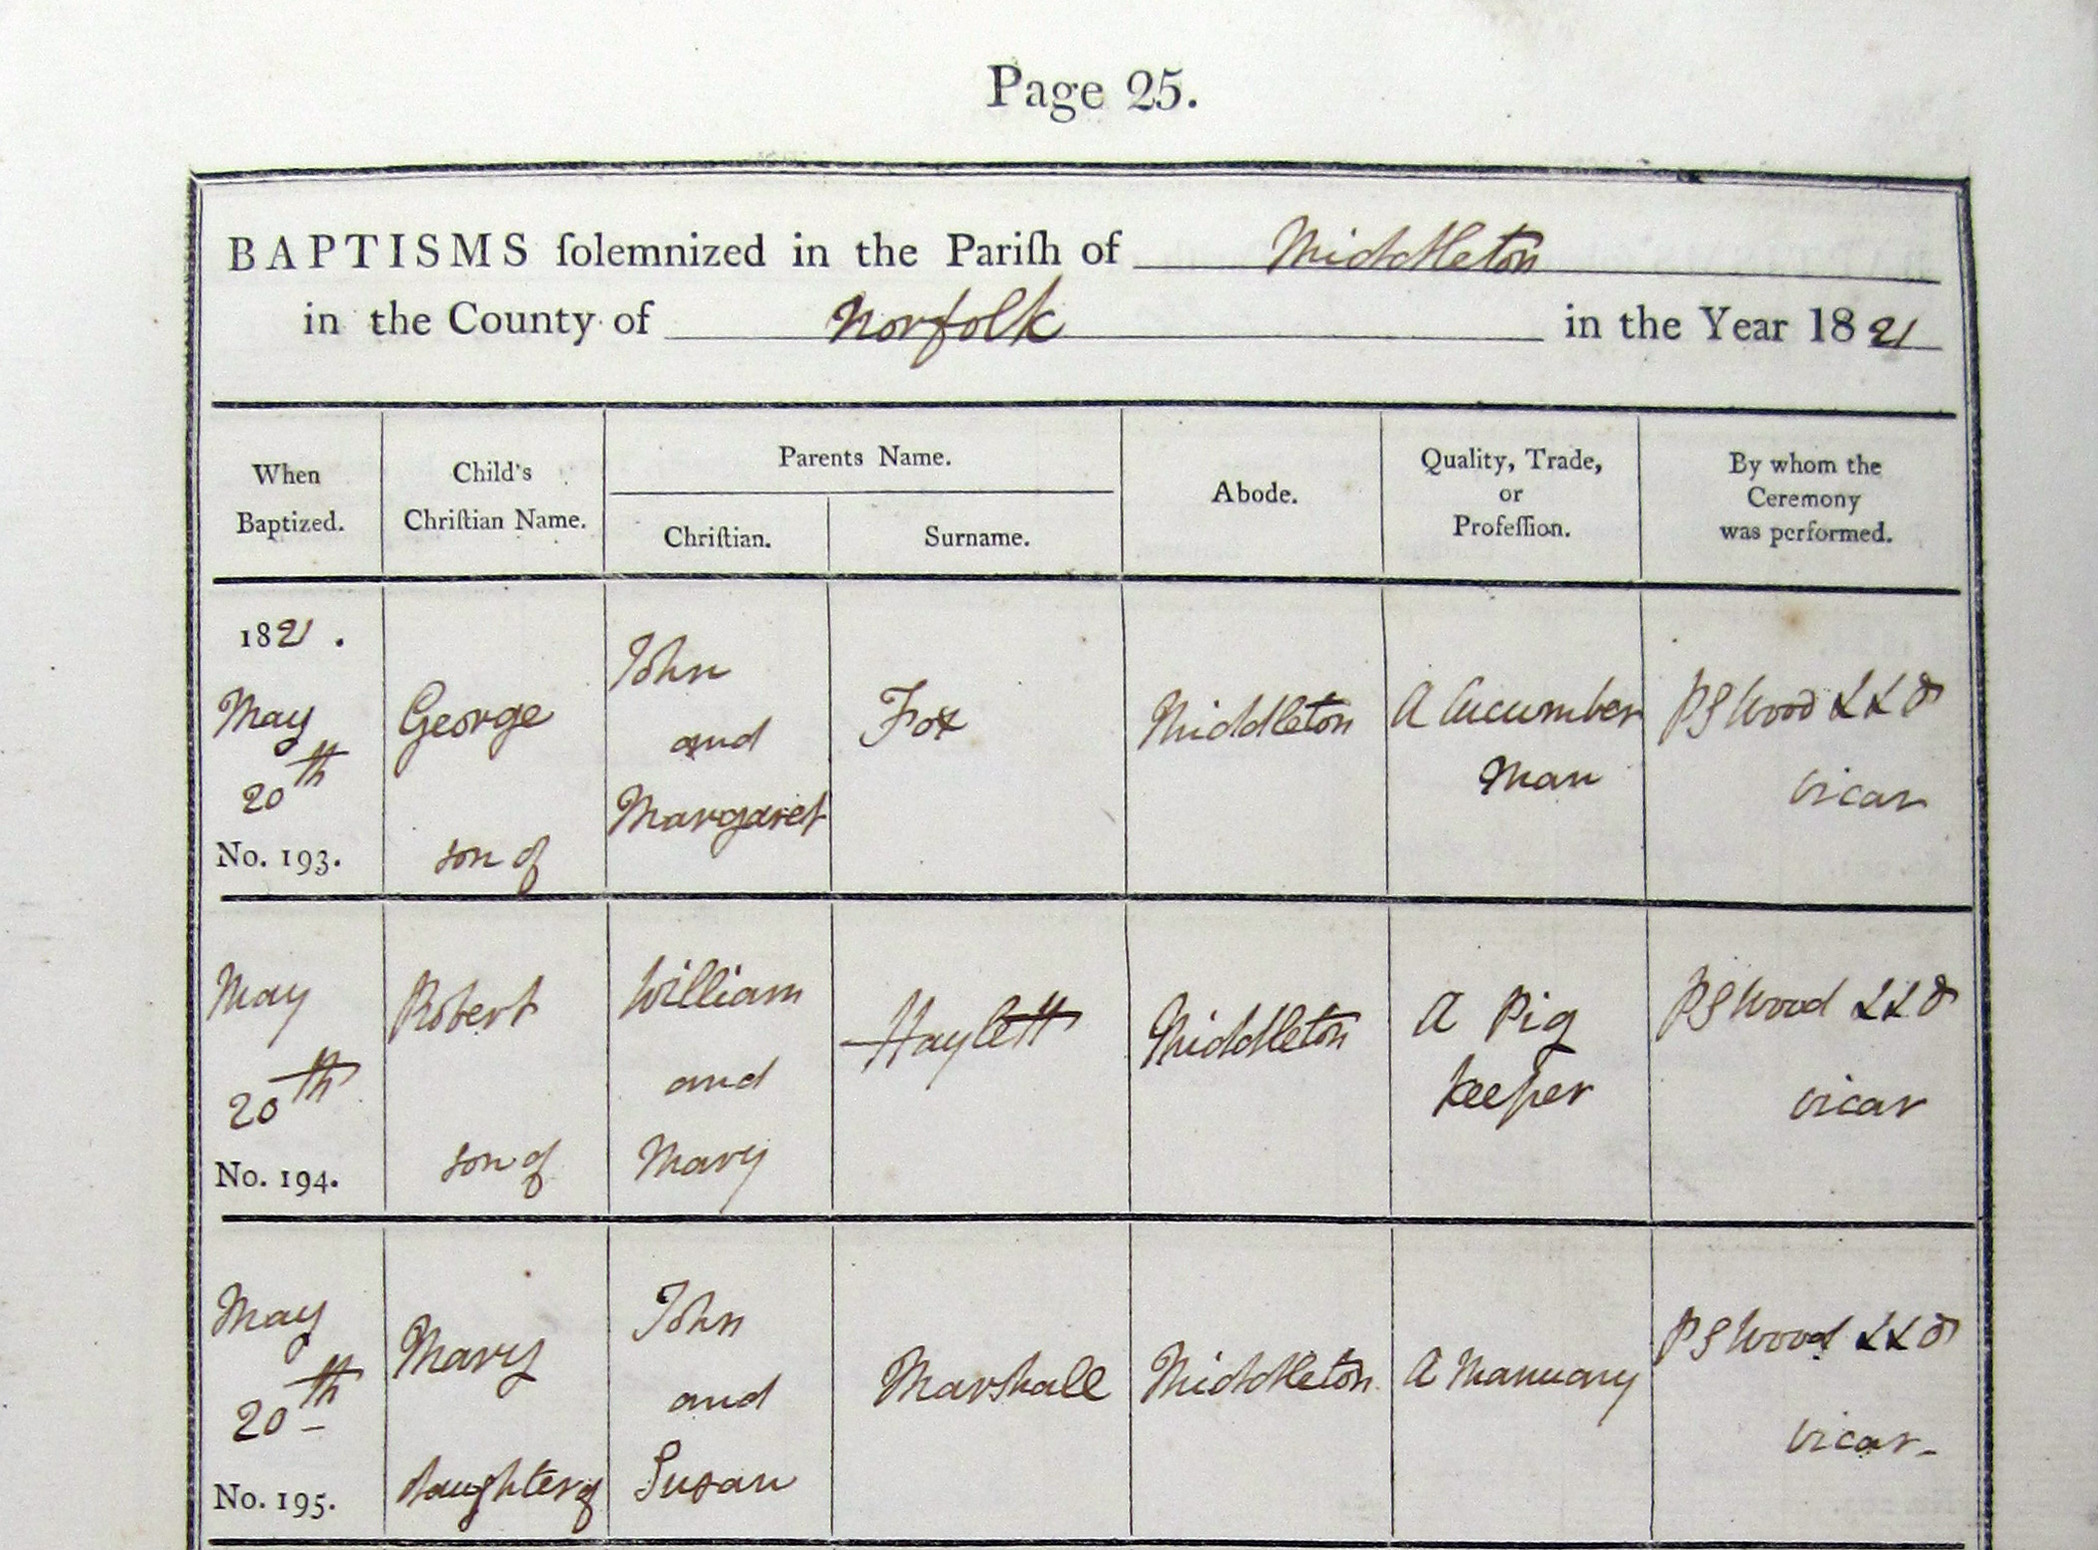 Page 25.
BAPTISMS ſolemnized in the Pariſh of Middleton
in the County of Norfolk in the Year 1821
When Baptized.
Child's Chriſtian Name.
Parents Name.
Chriſtian.
Surname.
Abode.
Quality, Trade, or Profeſſion.
By whom the Ceremony was performed.
1821.
May
20th
No. 193.
George
son of
John
and
Margaret
Fox
Middleton
A Cucumber
Man
PS Wood LLD
Vicar
May
20th
No. 194.
Robert
son of
William
and
Mary
Haylett
Middleton
A Pig
Keeper
PS Wood LLD
Vicar
May
20th
No. 195.
Mary
daughter of
John
and
Susan
Marshall
Middleton
A Manuary
PS Wood LLD
Vicar